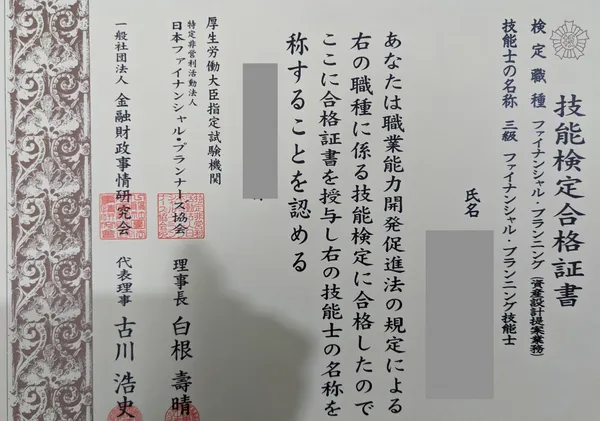 技能検定合格証書
検定職種 ファイナンシャル・プランニング（資産設計提案業務）
技能士の名称 三級 ファイナンシャル・プランニング技能士
氏名
あなたは職業能力開発促進法の規定による
右の職種に係る技能検定に合格したので
ここに合格証書を授与し右の技能士の名称を
称することを認める
厚生労働大臣指定試験機関
特定非営利活動法人
日本ファイナンシャル・プランナーズ協会 理事長 白根 壽晴
一般社団法人 金融財政事情研究会 代表理事 古川 浩史